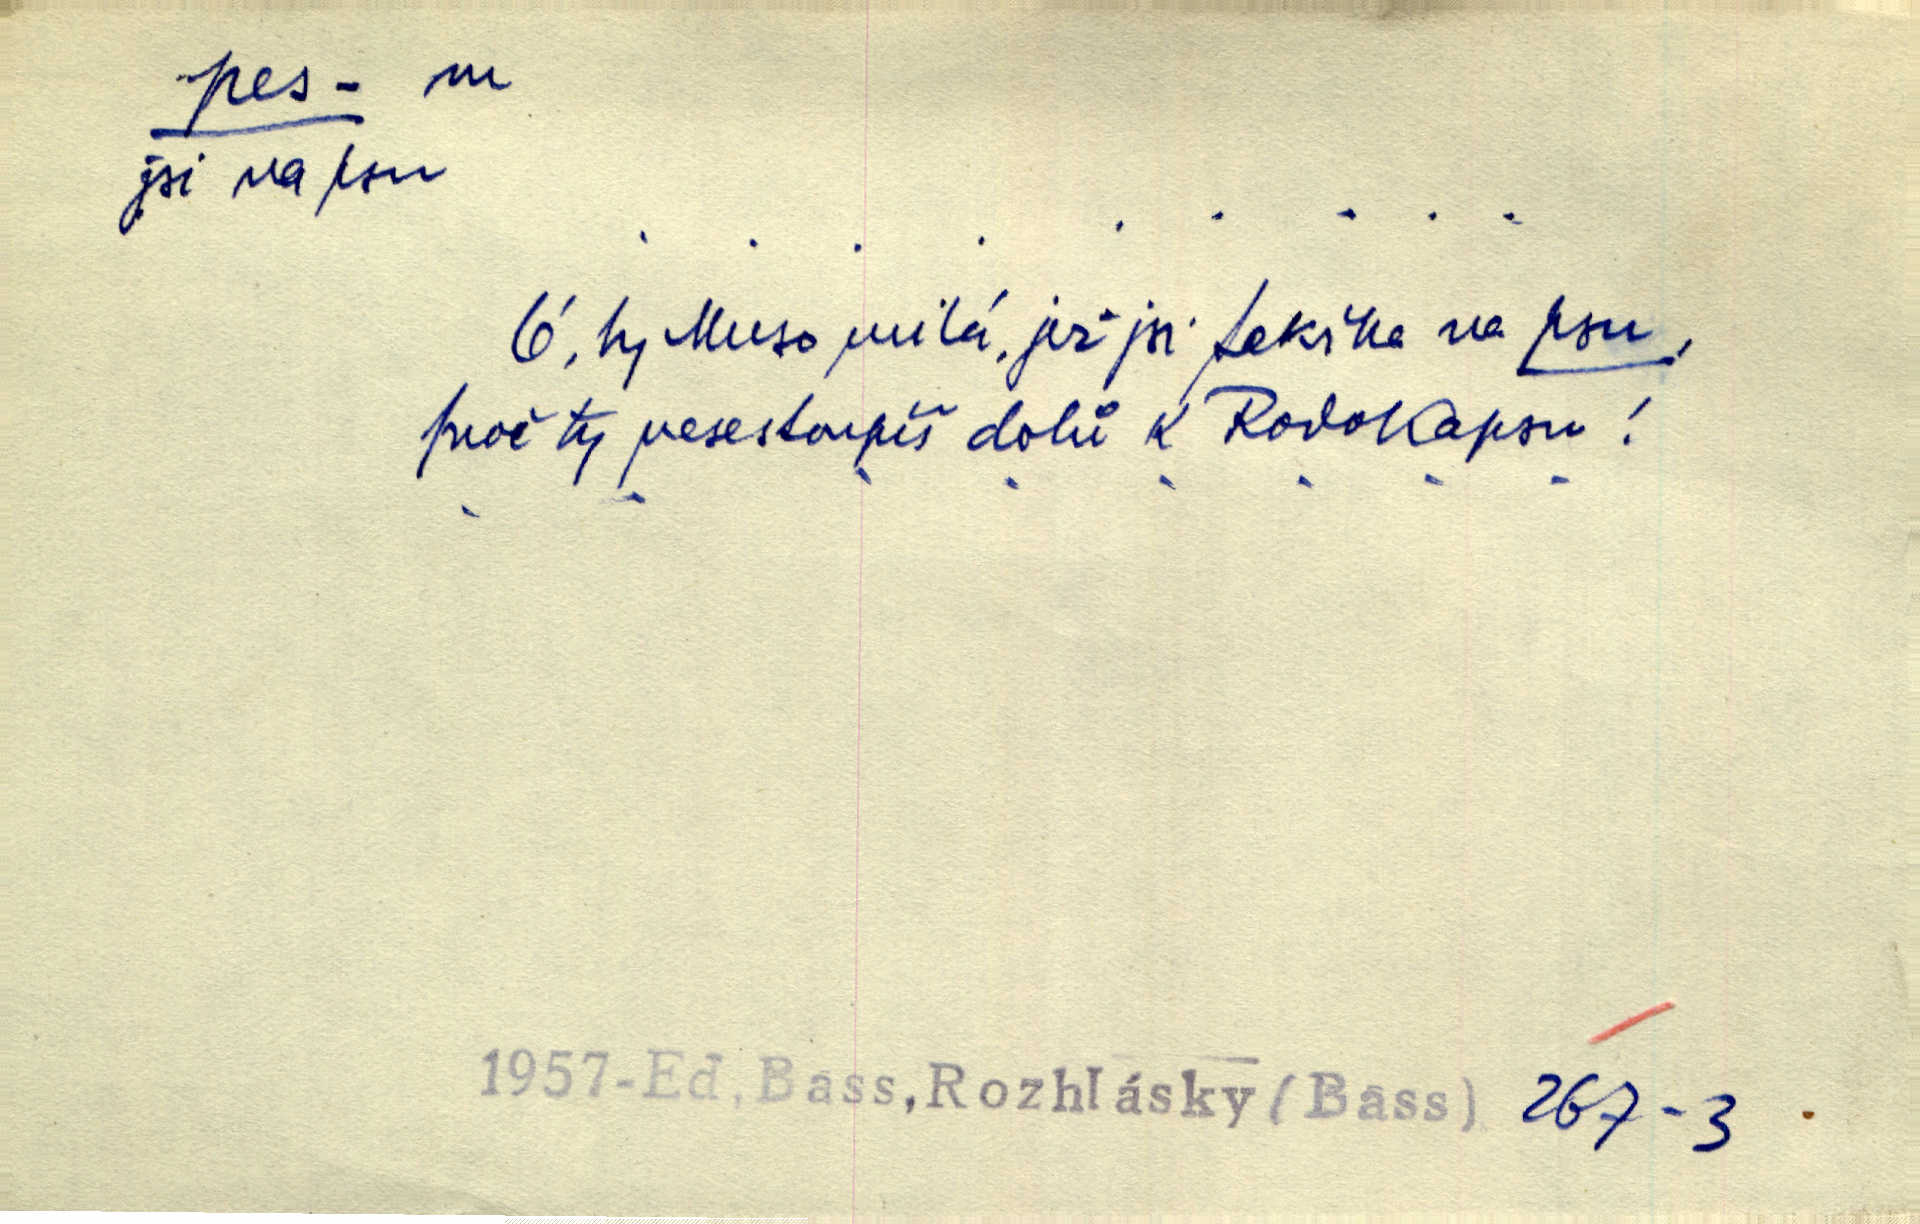 pes - m
jsi na psu
. . . . . . . . .
Ó, ty Muso milá, jež jsi takřka na psu,
proč ty nesestoupíš dolů k Rodokapsu!
. . . . . . . .
1957-Ed. Bass, Rozhlásky (Bass) 267-3